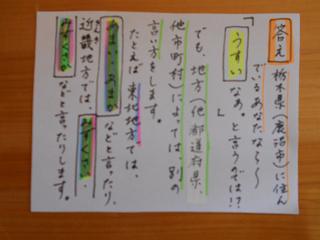 答え 栃木県(鹿沼市)に住ん
でいるあなたなら〜
「うすい なぁ。」と言うのでは!?
でも、地方(他都道府県、
他市町村)によっては、別の
言い方をします。
たとえば 東北地方では、
などと言ったり、
近畿地方では、みずくさい・
みずくさい などと言ったりします。